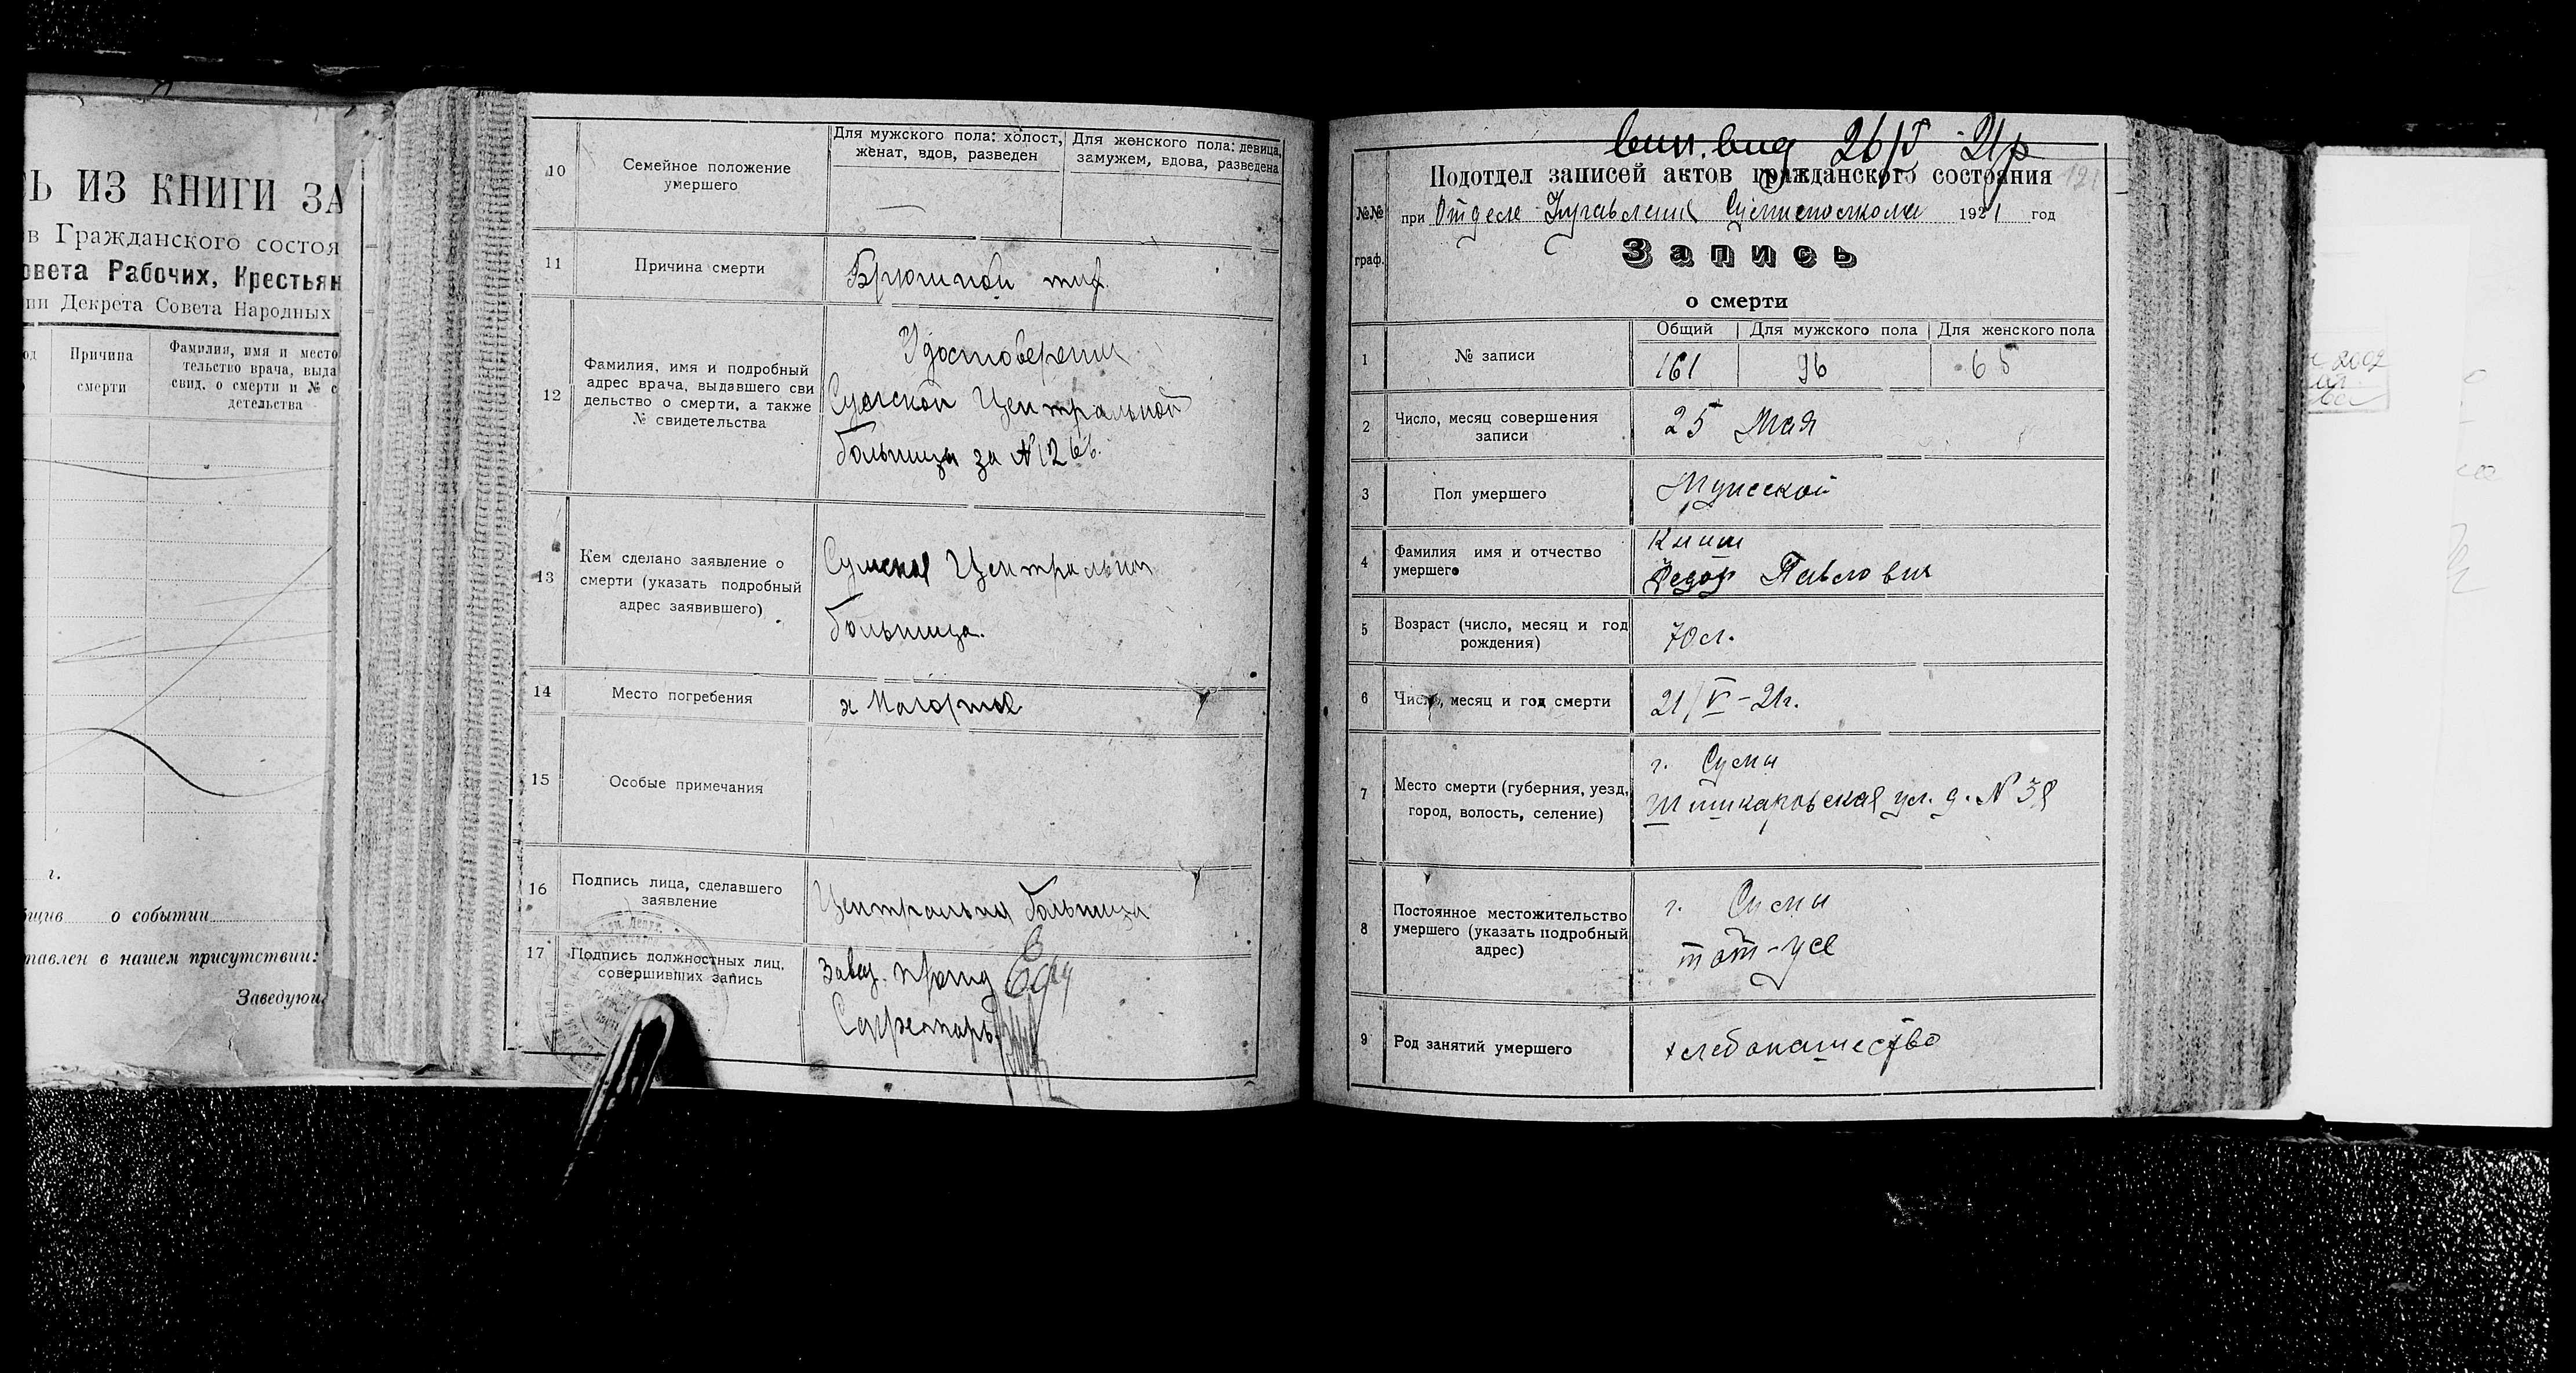 Ь ИЗ КНИГИ ЗА
в Гражданского состоя
овета Рабочих, Крестьян
ии Декрета Совета Народных
Причина
смерти
Фамилия, имя и место
тельство врача, выда
свид. о смерти и № с
детельства
г.
о событии
тавлен в нашем присутствии:
Заведующ
10
Семейное положение
умершего
Для мужского пола: холост,
женат, вдов, разведен
Для женского пола: девица,
замужем, вдова, разведена
—
11
Причина смерти
Брюшной тиф.
12
Фамилия, имя и подробный
адрес врача, выдавшего сви
дельство о смерти, а также
№ свидетельства
Удостоверение
Сумской Центральной
больницы за №
13
Кем сделано заявление о
смерти (указать подробный
адрес заявившего)
Сумская Центральная
больница.
14
Место погребения
15
Особые примечания
16
Подпись лица, сделавшего
заявление
Центральная больница
17
Подпись должностных лиц,
совершивших запись
Завед.
Секретарь
26/V 21
121
Подотдел записей актов гражданского состояния
№№
граф.
при Отделе Управления Сумисполкома 1921 год
Запись
о смерти
1
№ записи
Общий
Для мужского пола
Для женского пола
161
96
65
2
Число, месяц совершения
записи
25 Мая
3
Пол умершего
Мужской
4
Фамилия имя и отчество
умершего
Федор Павлович
5
Возраст (число, месяц и год
рождения)
70 л.
6
Число, месяц и год смерти
21/V-21г.
7
Место смерти (губерния, уезд,
город, волость, селение)
г. Сумы
ул. д. № 38
8
Постоянное местожительство
умершего (указать подробный
адрес)
г. Сумы
там-же
9
Род занятий умершего
хлебопашество